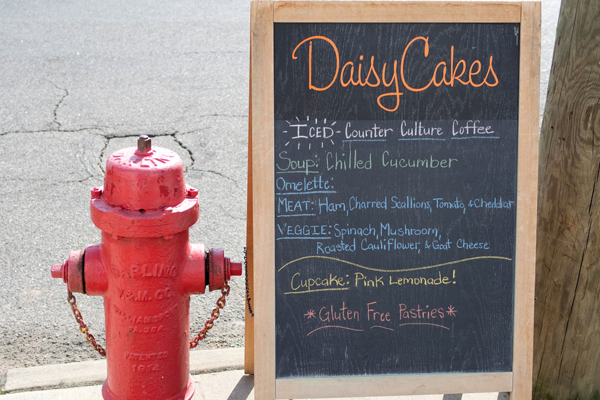 DaisyCakes
ICED - Counter Culture Coffee
Soup: Chilled Cucumber
Omelette:
MEAT: Ham, Charred Scallions, Tomato, & Cheddar
VEGGIE: Spinach, Mushroom,
Roasted Cauliflower, & Goat Cheese
Cupcake: Pink Lemonade!
*Gluten Free Pastries*
DARLING
V.&M. CO.
WILLIAMSPORT
PA. U.S.A.
PATENTED